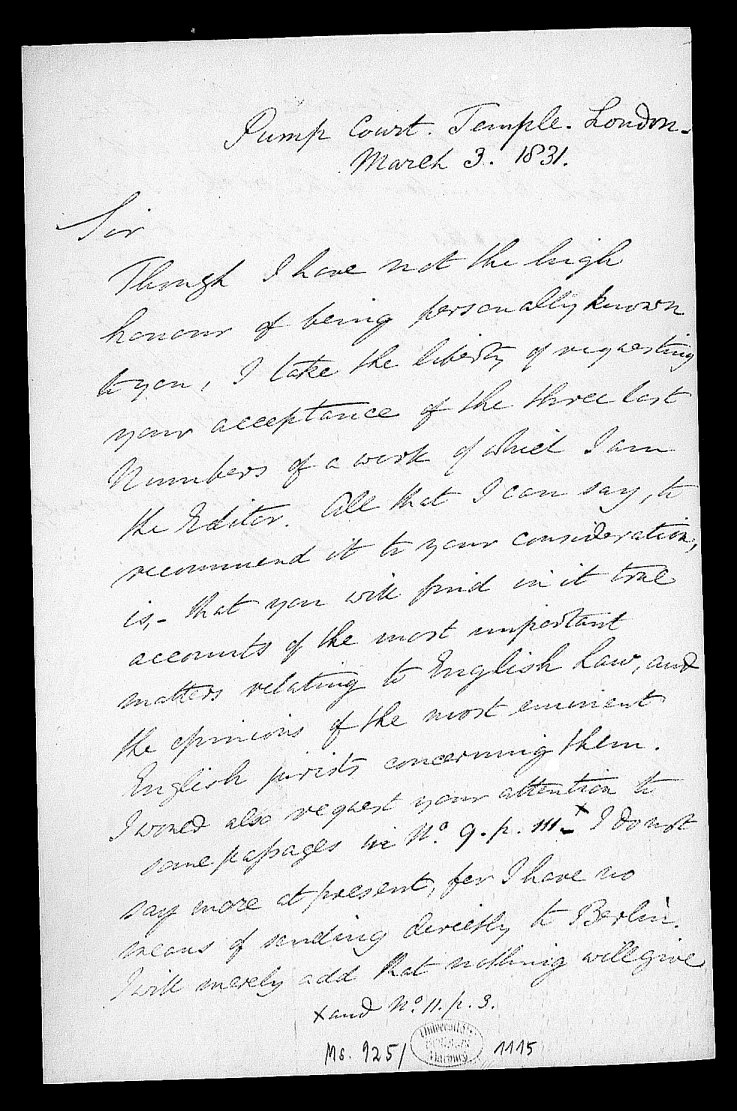 Pump Court. Temple. London.
March 3. 1831.
Sir
Though I have not the high
honour of being personally known
to you, I take the liberty of requesting
your acceptance of the three last
Numbers of a work of which I am
the Editor. All that I can say, to
recommend it to your consideration,
is, - that you will find in it true
accounts of the most important
matters relating to English Law, and
the opinions of the most eminent
English jurists concerning them.
I would also request your attention to
some passages in No. 9. p. 111 x I do not
say more at present, for I have no
means of sending directly to Berlin.
I will merely add that nothing will give
x and No. 11. p. 3.
Ms. 925/ 1115
Marburg